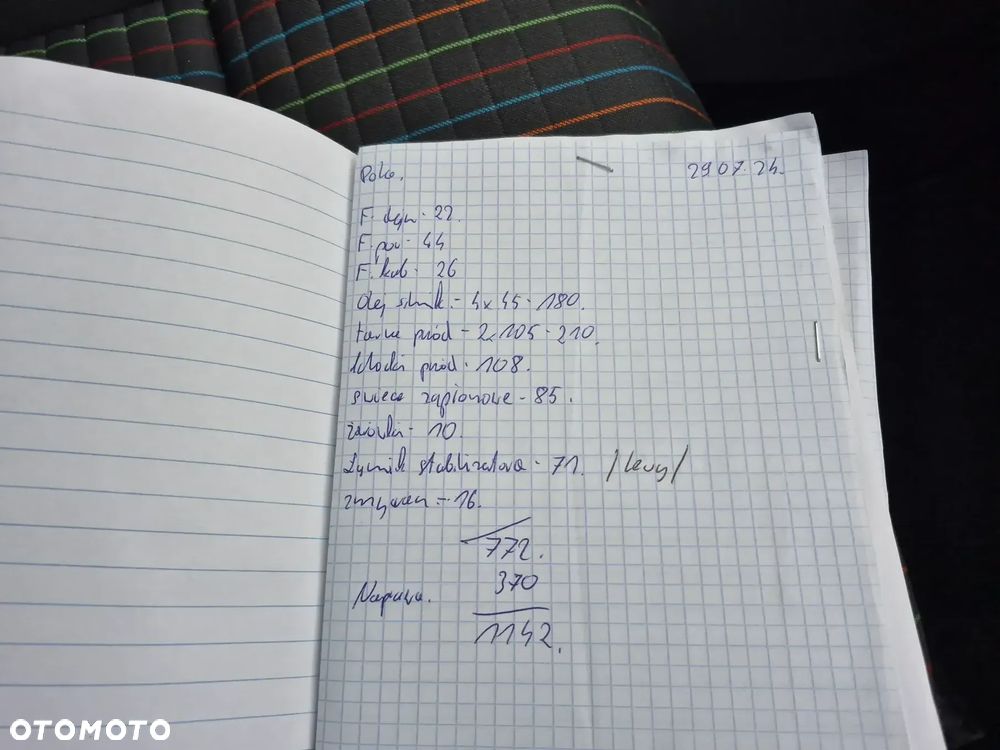 Polo. 29.07.24.
F. olejn - 22.
F. pow - 44
F. kab - 26
olej silnik - 4x45 - 180.
tarcze przód - 2x105 - 210.
klocki przód - 108.
świece zapłonowe - 85.
żarówka - 10.
Łącznik stabilizatora - 71. /lewy/
zmywacz - 16.
772.
370
Naprawa.
1142.
OTOMOTO